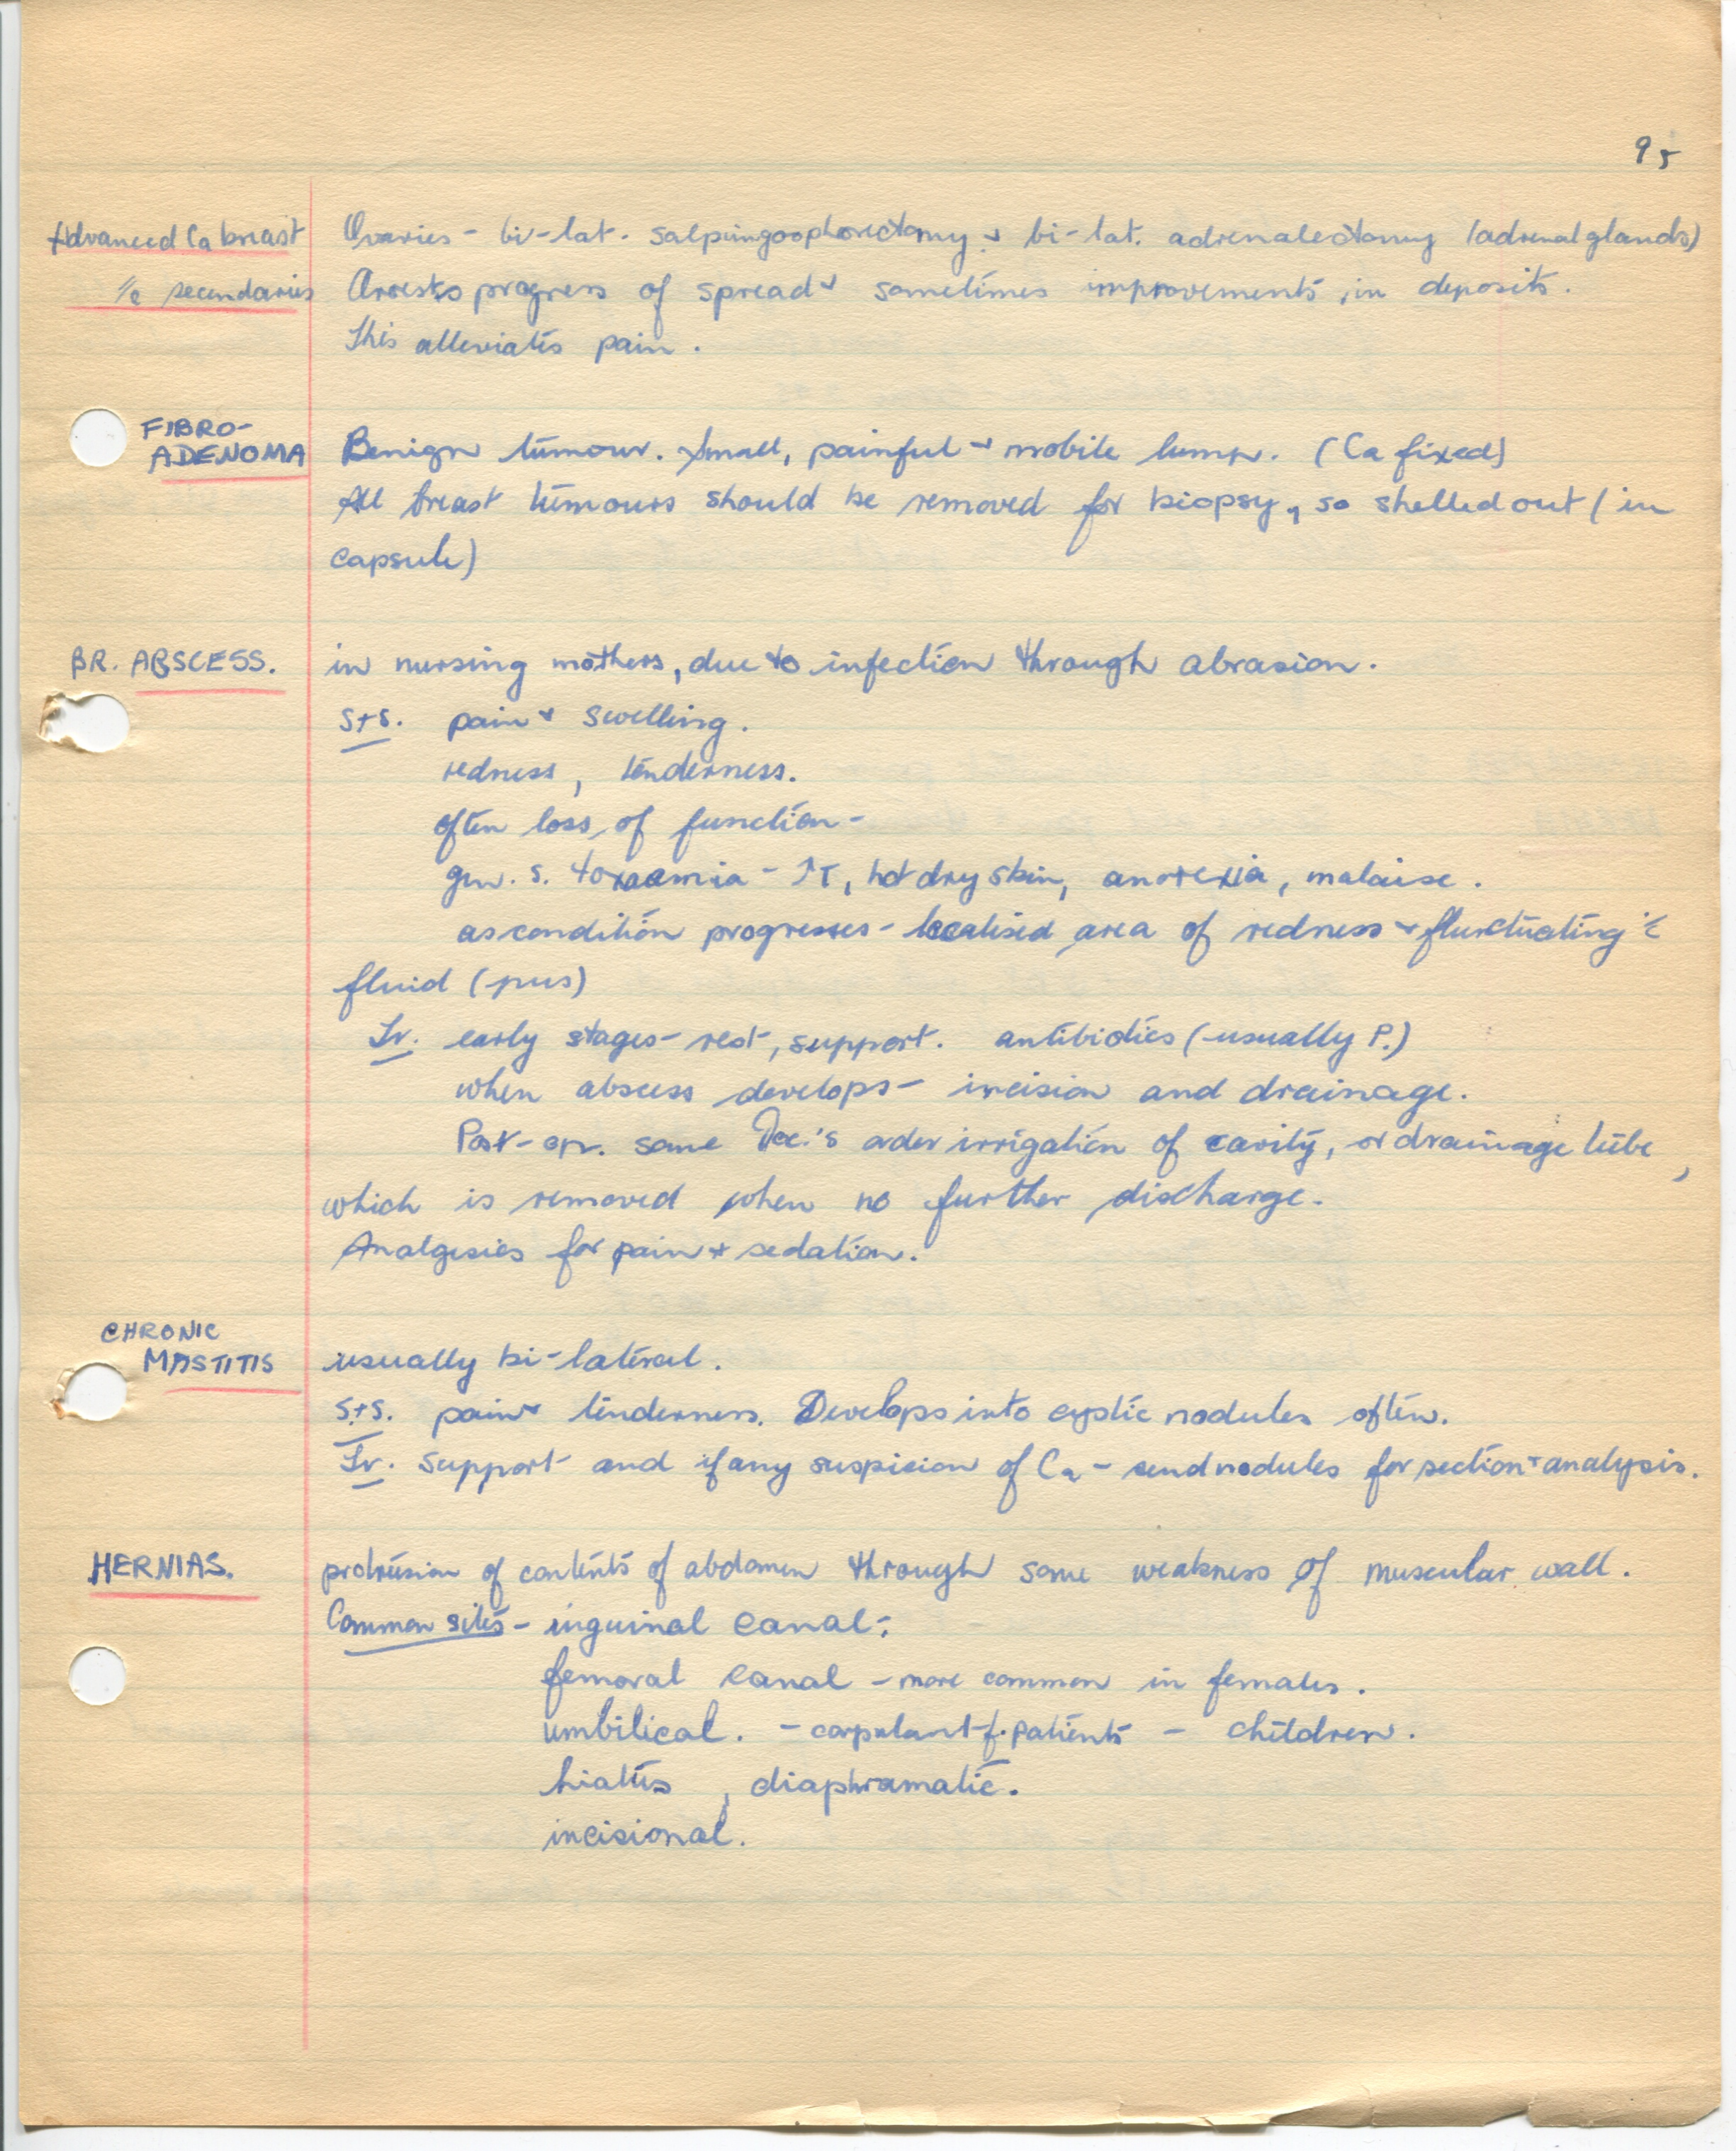 95
Advanced Ca breast Ovaries - bi-lat. salpingoophorectomy + bi-lat. adrenalectomy (adrenal glands)
c̄ secondaries Arrests progress of spread + sometimes improvements in deposits.
This alleviates pain.
FIBRO-
ADENOMA Benign tumour. Small, painful + mobile lump. (Ca fixed)
All breast tumours should be removed for biopsy, so shelled out (in
capsule)
BR. ABSCESS. in nursing mothers, due to infection through abrasion.
S+S. pain + swelling.
redness, tenderness.
often loss of function -
gen. s. toxaemia - ↑T, hot dry skin, anorexia, malaise.
as condition progresses - localised area of redness + fluctuating c̄
fluid (pus)
Tr. early stages - rest, support. antibiotics (usually P.)
when abscess develops - incision and drainage.
Post-op. some Doc.'s order irrigation of cavity, or drainage tube,
which is removed when no further discharge.
Analgesics for pain + sedation.
CHRONIC
MASTITIS usually bi-lateral.
S+S. pain + tenderness. Develops into cystic nodules often.
Tr. Support and if any suspicion of Ca - send nodules for section + analysis.
HERNIAS. protrusion of contents of abdomen through some weakness of muscular wall.
Common sites - inguinal canal;
femoral canal - more common in females.
umbilical. - corpulant f. patients - children.
hiatus, diaphramatic.
incisional.